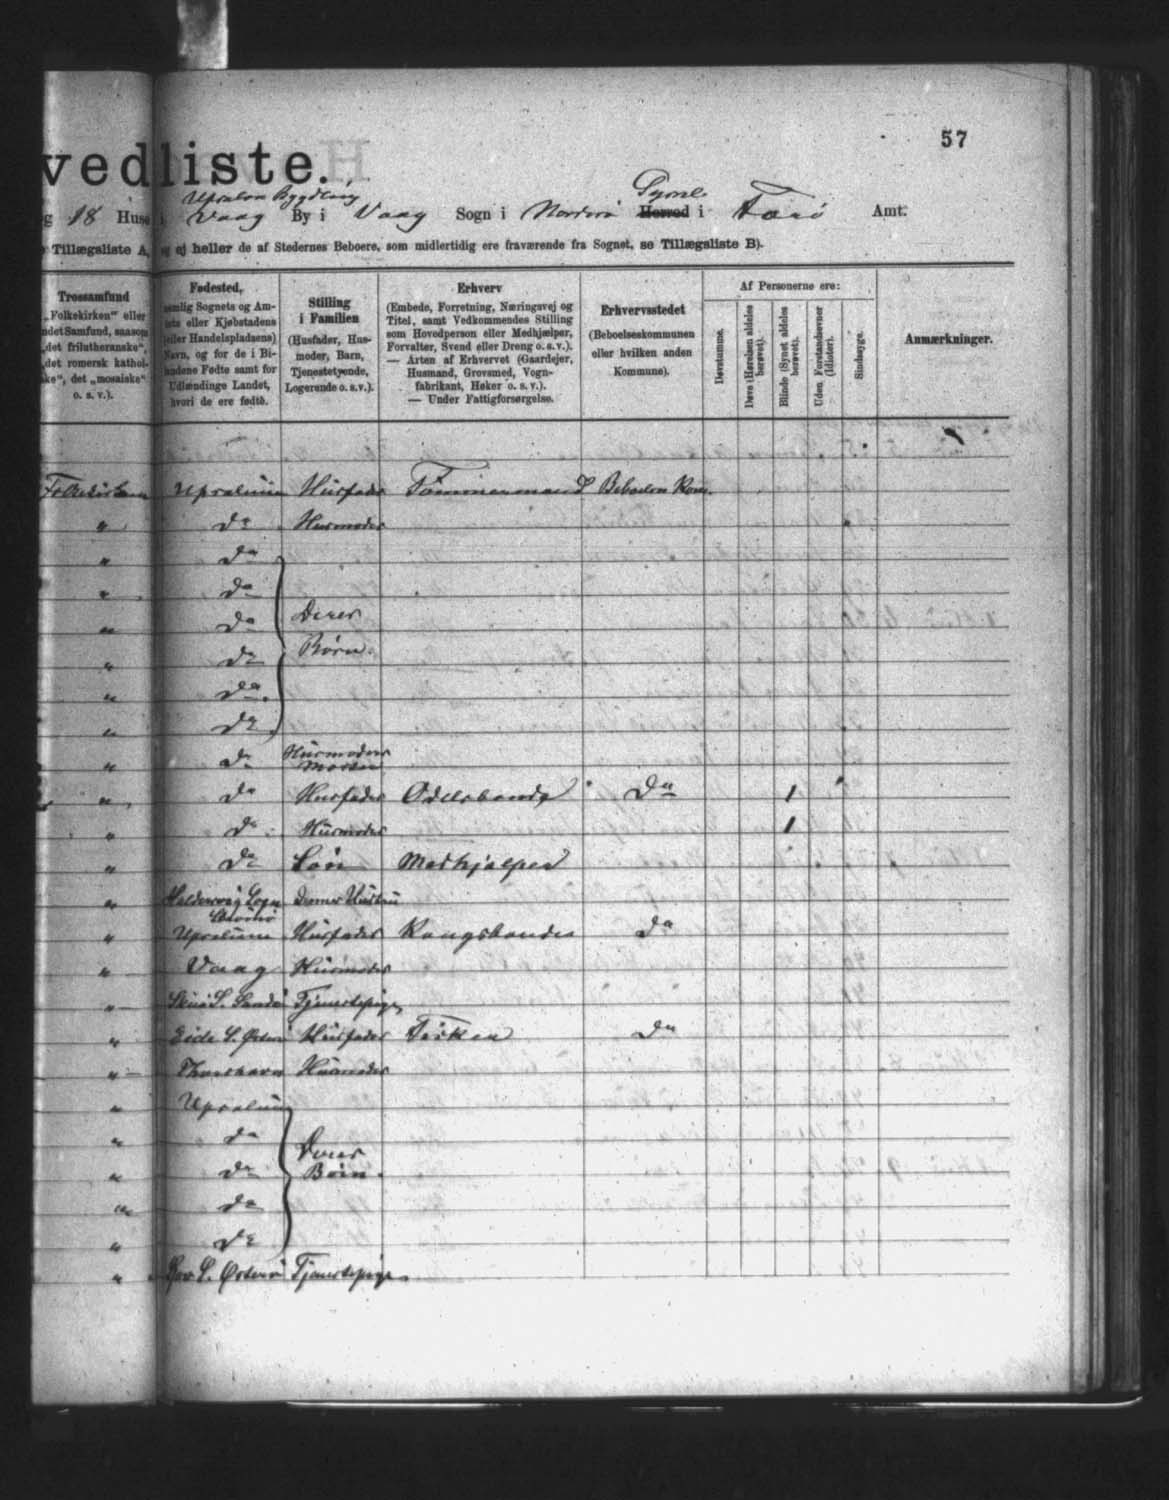 57
vedliste.
Upsalen Bygdelag
Syssel
og 18 Huse i Vaag By i Vaag Sogn i Norderø Herred i Færø Amt.
Tillægsliste A, og ej heller de af Stedernes Beboere, som midlertidig ere fraværende fra Sognet, se Tillægsliste B).
Trossamfund
„Folkekirken" eller
andet Samfund, saasom
„det frilutheranske",
„det romersk kathol-
ske", det „mosaiske"
o. s. v.).
Fødested,
nemlig Sognets og Am-
tets eller Kjøbstadens
(eller Handelspladsens)
Navn, og for de i Bi-
landene Fødte samt for
Udlændinge Landet,
hvori de ere fødte.
Stilling
i Familien
(Husfader, Hus-
moder, Barn,
Tjenestetyende,
Logerende o. s. v.).
Erhverv
(Embede, Forretning, Næringsvej og
Titel, samt Vedkommendes Stilling
som Hovedperson eller Medhjælper,
Forvalter, Svend eller Dreng o. s. v.).
— Arten af Erhvervet (Gaardejer,
Husmand, Grovsmed, Vogn-
fabrikant, Høker o. s. v.).
— Under Fattigforsørgelse.
Erhvervsstedet
(Beboelseskommunen
eller hvilken anden
Kommune).
Af Personerne ere:
Døvstumme.
Døve (Hørelsen aldeles
berøvet).
Blinde (Synet aldeles
berøvet).
Uden Forstandsevner
(Idioter).
Sindssyge.
Anmærkninger.
Folkekirken Husfader Tømmermand Beboelses Kom.
" do Husmoder
" do
" do
" do Deres
" do Børn.
" do
" do
" do Husmoders
Moder
" do Husfader Odelsbonde do 1
" do Husmoder 1
" do Søn Medhjælper
" Haldersvig Sogn Dennes Hustru
Strømø
" Husfader Kongsbonde do
" Vaag Husmoder
" Tjenestepige
" Eide S. Østerø Husfader Fisker do
" Thorshavn Husmoder
"
" do Deres
" do Børn.
" do
" do
" S. Østerø Tjenestepige